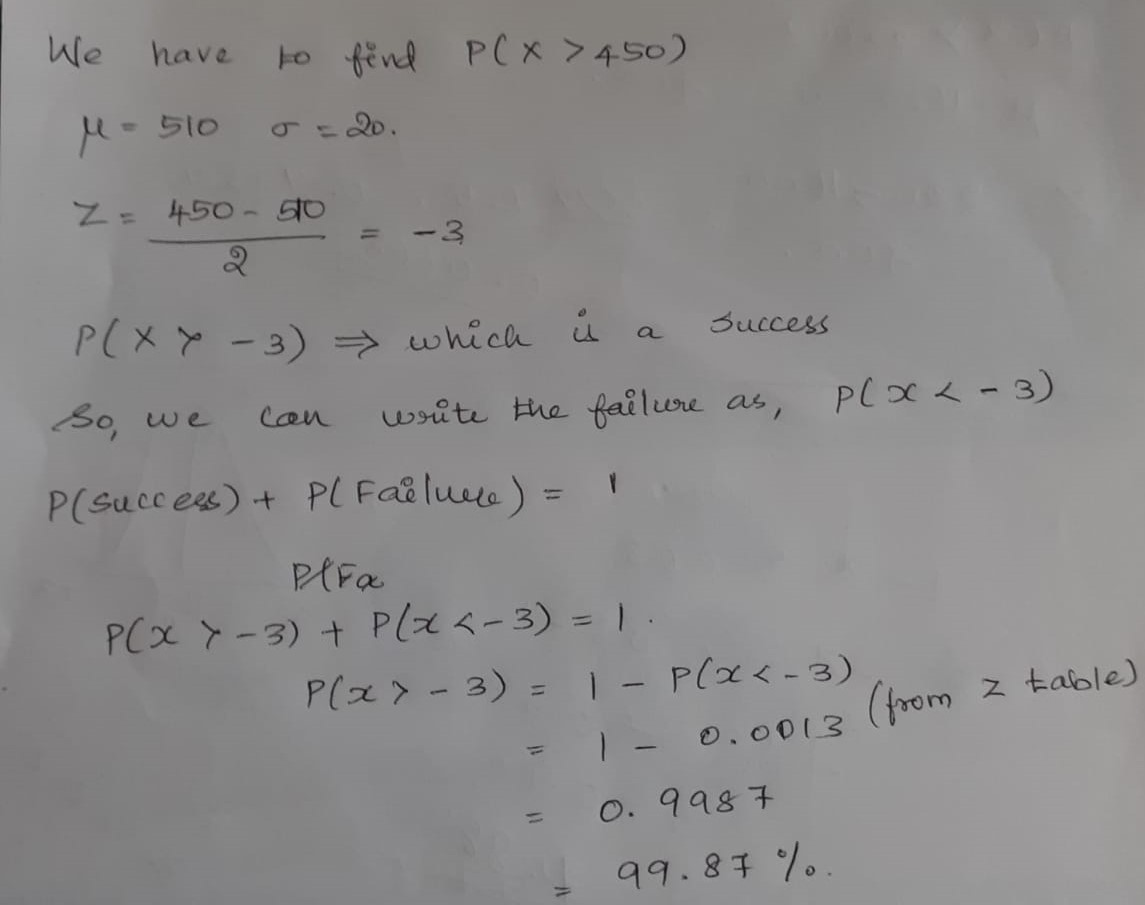 We have to find P(X > 450)
μ = 510 σ = 20.
Z = 450 - 510 / 2 = -3
P(X > -3) ⇒ which is a success
So, we can write the failure as, P(x < -3)
P(Success) + P(Failure) = 1
P(Fa
P(x > -3) + P(x < -3) = 1.
P(x > -3) = 1 - P(x < -3)
= 1 - 0.0013 (from z table)
= 0.9987
= 99.87 %.